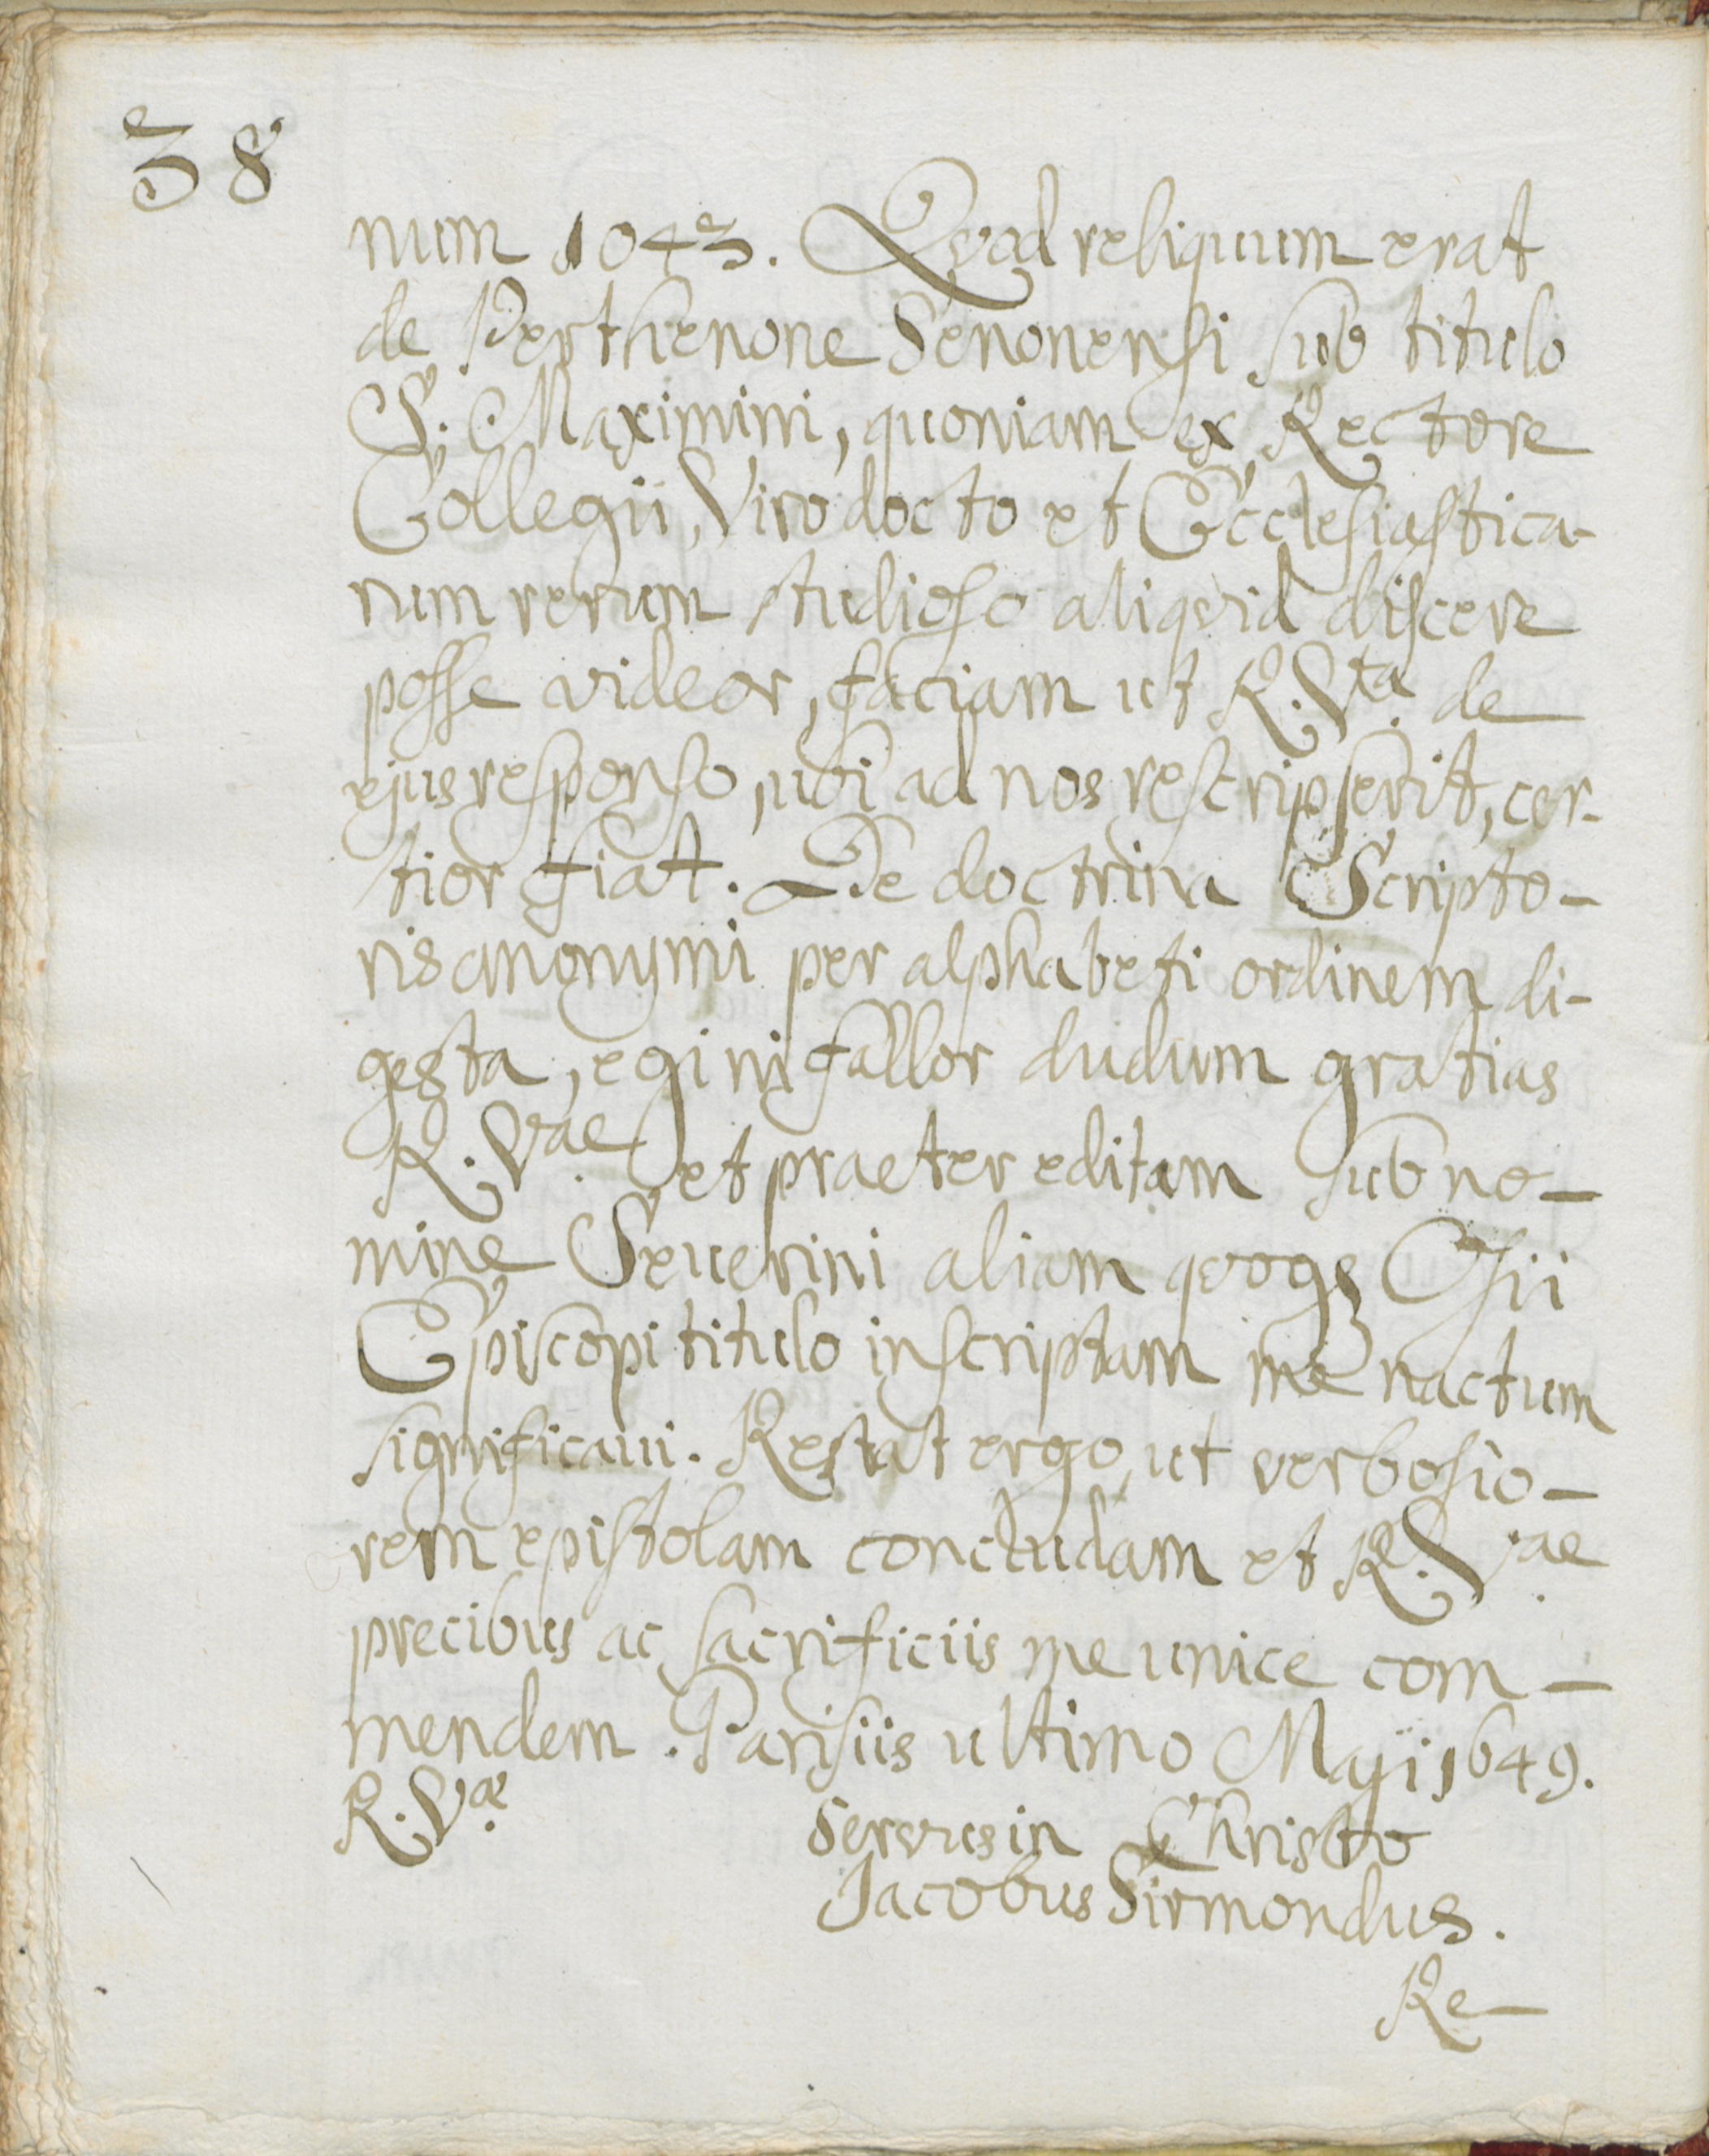 38
num 1043. Quod reliquum erat
de Perthenone Senonensi sub titulo
S. Maximini, quoniam ex Rectore
Collegii, Viro docto et Ecclesiastica-
rum rerum studioso aliquid discere
posse videor, faciam ut R. Vta. de
ejus responso, ubi ad nos rescripserit, cer-
tior fiat. De doctrina Scripto-
ris anonymi per alphabeti ordinem di-
gesta, egi ni fallor dudum gratias
R. Vae. et praeter editam sub no-
mine Seuerini aliam quoqȝ Osii
Episcopi titulo inscriptam me nactum
significaui. Restat ergo, ut verbosio-
rem epistolam concludam et R. Vae.
precibus ac sacrificiis me unice com-
mendem. Parisiis ultimo Maji 1649.
R. Væ.
Servus in Christo
Jacobus Sirmondus.
Re-